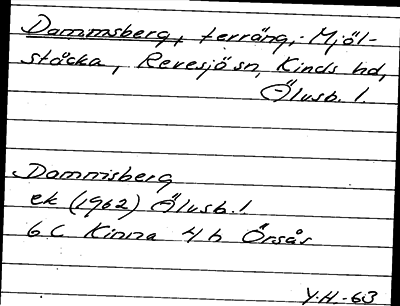 Dammsberg, terräng, Mjöl-
stocka, Revesjö sn, Kinds hd,
Älvsb. l.
Dammsberg
ek (1962) Älvsb. l.
6 C Kinna 4 h Örsås
Y.H. -63